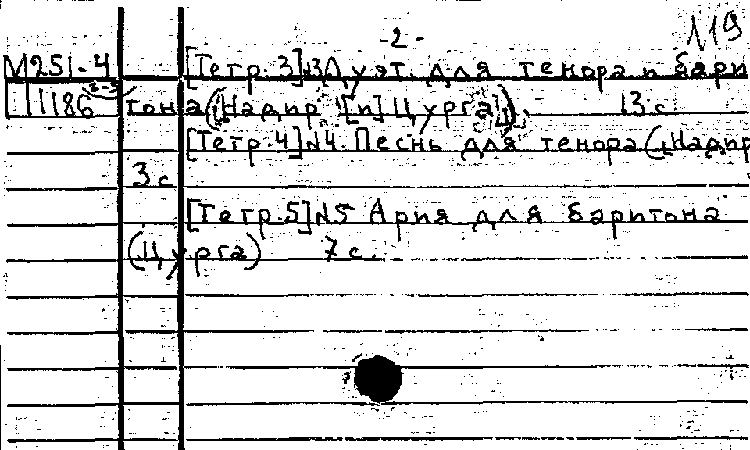 -2-
119
М251-4 [Тетр. 3] №3 Дуэт. для тенора и бари
П1186 2-3 тона (Надир [и] Цурга). 13 с.
[Тетр. 4] №4. Песнь для тенора (Надир
3 с
[Тетр. 5] №5 Ария для баритона
(Цурга) 7 с.